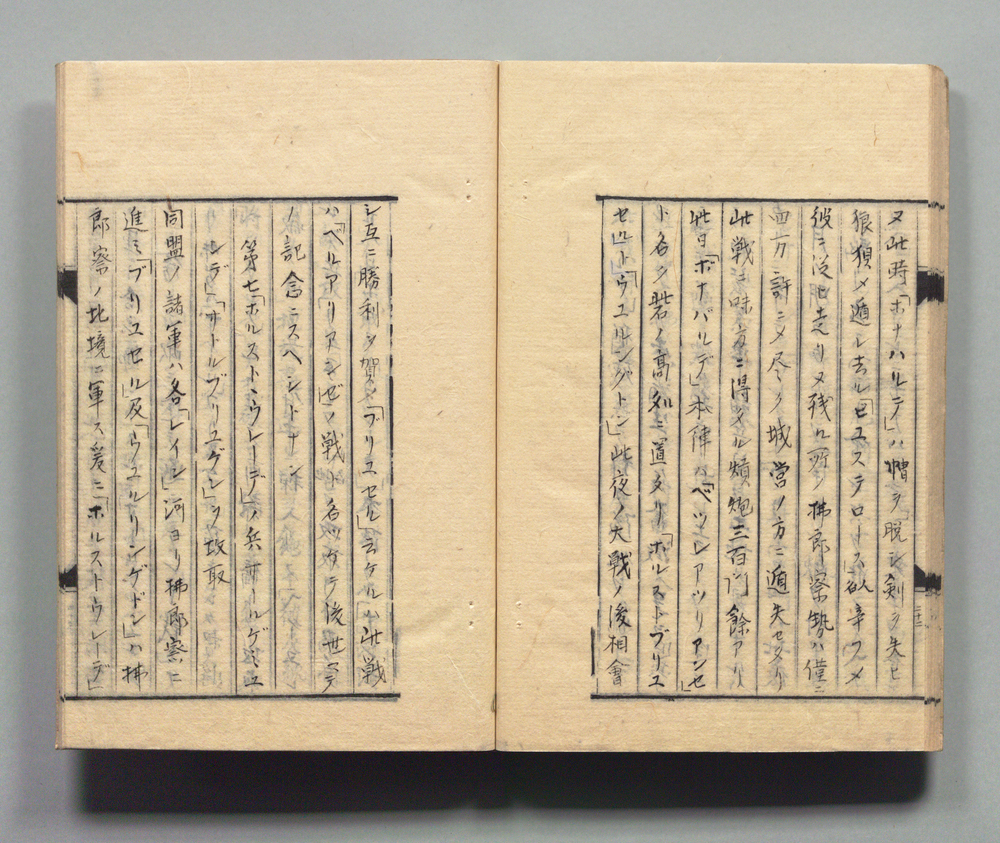 又此時「ボナハルテ」ハ帽ヲ脱シ剣ヲ失ヒ
狼狽シテ遁レ去ル「セユステロース欲辛フメ
彼ニ従ヒ走リ又残ル所ノ拂郎察勢ハ僅ニ
四方許ニメ尽ク城営ノ方ニ遁失セタリ
此戦ニ味方ニ得タル煩炮三百門餘アリ
此日「ボナパルテ」本陣ハ「ベツレアツリアンセ」
ト名ク此名ノ高処ニ道タリ「ボルストブリユ
セル」ト「ウユルングトン」此夜ノ大戦ノ後相會
シ互ニ勝利ヲ賀ス「ブリユセル」ニケル此戦
ハ「ベルアリアンゼ」ノ戦ト名ツケテ後世ヲ
ノ記念ニスヘシトナン
第七「ホルストウレーデ」ノ兵「サールゲミユ
ンデ」「サトルブリユゲン」ヲ攻取
同盟ノ諸軍ハ各「レイン」河ヨリ拂郎察ニ
進ミ「ブリユセル」及「ウユルリンゲドン」ハ拂
郎察ノ北境ニ軍ス爰ニ「ホルストウレーデ」